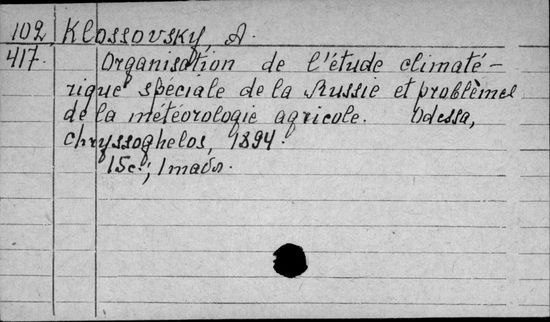 102 Klossovsky, A.
417. Organisation de l'étude climaté-
rique spéciale de la Russie et problèmes
de la météorologie agricole. Odessa,
chryssoghelos, 1894.
15c.;